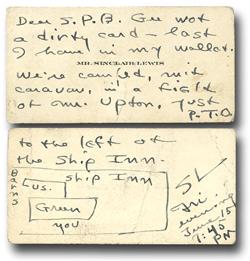 Dear S.P.B. Gee wot
a dirty card – last
I have in my wallet.
MR. SINCLAIR LEWIS
We're camped, mit
caravan, in a field
of mr. Upton, just
P.T.O
to the left of
the Ship Inn.
Ship Inn
Barns
us.
Green
you
SL
Fri.
evening
June 15
7:40
PM